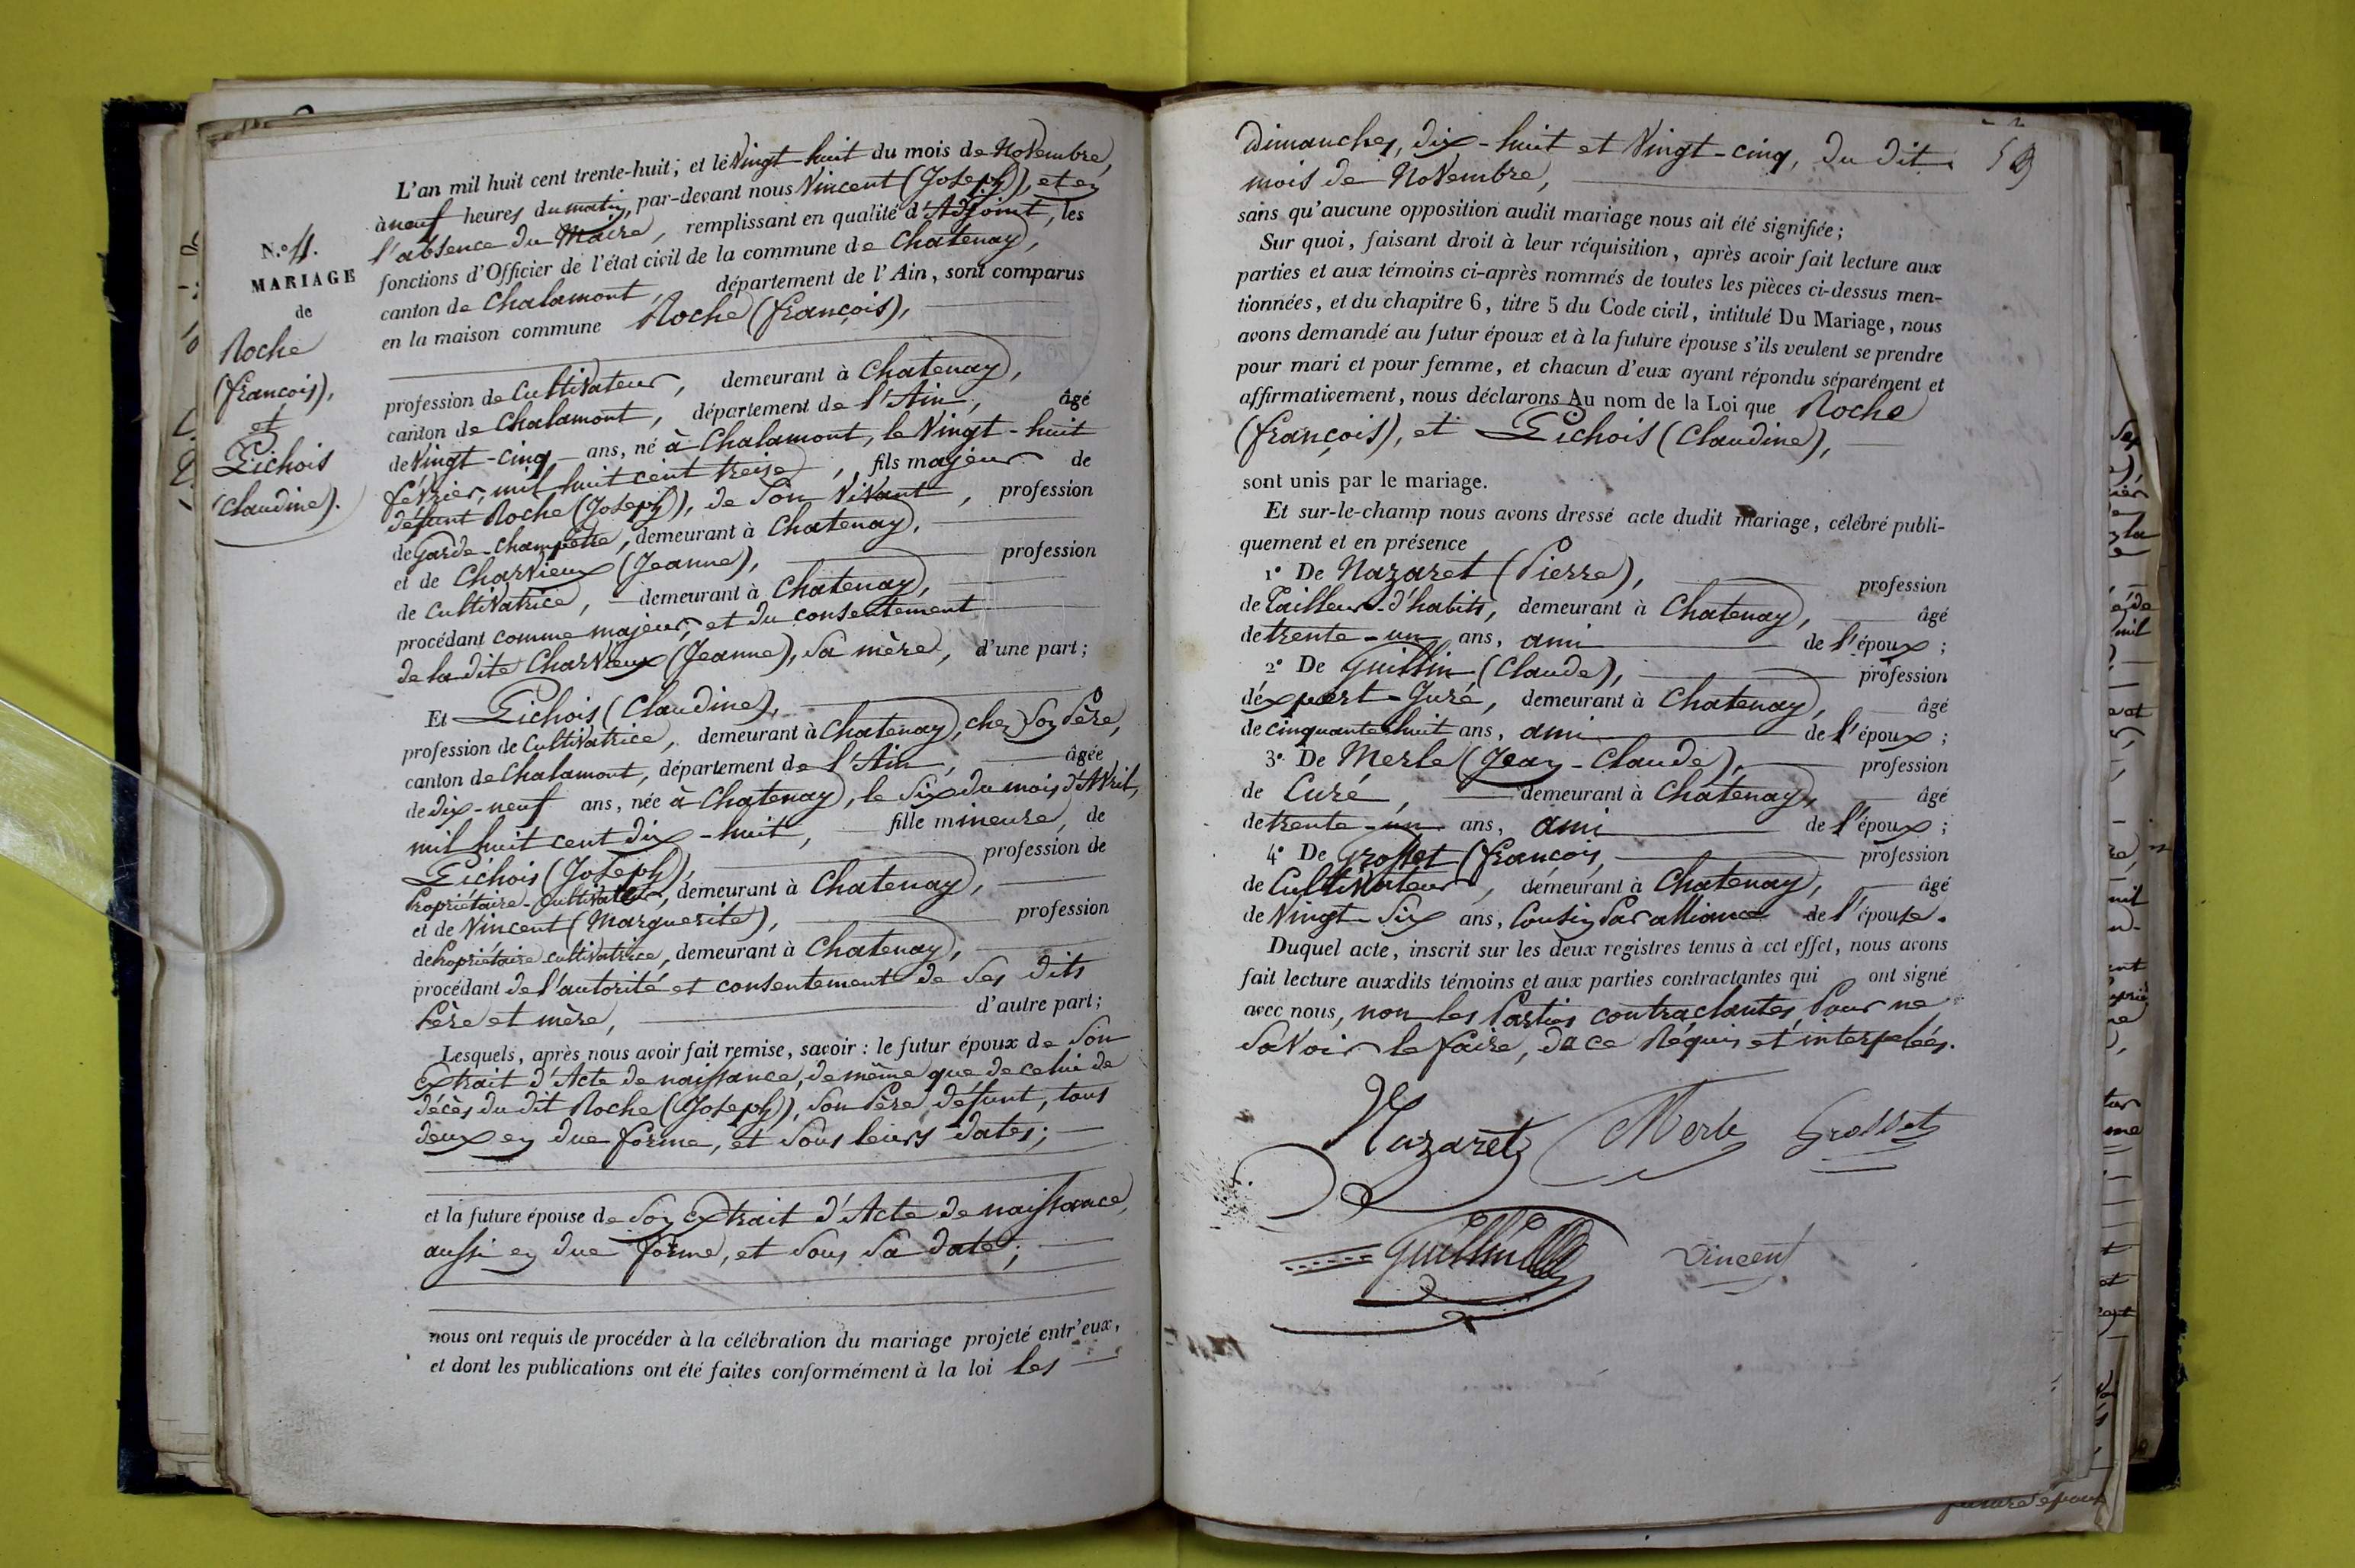 L'an mil huit cent trente-huit, et le Vingt-huit du mois de Novembre,
à neuf heures du matin, par-devant nous Vincent (Joseph), et en
l'absence du Maire, remplissant en qualité d'Adjoint, les
fonctions d'Officier de l'état civil de la commune de Chatenay,
canton de Chalamont, département de l'Ain, sont comparus
en la maison commune Roche (françois),
profession de Cultivateur, demeurant à Chatenay,
canton de Chalamont, département de l'Ain, âgé
de Vingt-cinq ans, né à Chalamont, le Vingt-huit
février, mil huit cent treize, fils majeur de
défunt Roche (Joseph), de Son Vivant, profession
de Garde-Champêtre, demeurant à Chatenay,
et de Charvieux (Jeanne), profession
de Cultivatrice, demeurant à Chatenay,
procédant comme majeur, et du consentement
de la dite Charvieux (Jeanne), Sa mère, d'une part;
N.º 4.
MARIAGE
de
Roche
(françois),
et
Pichois
(Claudine).
Et Pichois (Claudine),
profession de Cultivatrice, demeurant à Chatenay, chez Son Père,
canton de Chalamont, département de l'Ain, âgée
de dix-neuf ans, née à Chatenay, le Six du mois d'Avril,
mil huit cent dix-huit, fille mineure, de
Pichois (Joseph), profession de
Propriétaire-Cultivateur, demeurant à Chatenay,
et de Vincent (Marguerite), profession
de Propriétaire-cultivatrice, demeurant à Chatenay,
procédant de l'autorité et consentement de Ses dits
Père et mère, d'autre part;
Lesquels, après nous avoir fait remise, savoir : le futur époux de Son
Extrait d'Acte de naissance, de même que de celui de
décès du dit Roche (Joseph), Son Père, défunt, tous
deux en due forme, et Sous leurs dates;
et la future épouse de Son Extrait d'Acte de naissance,
aussi en due forme, et Sous Sa date;
nous ont requis de procéder à la célébration du mariage projeté entr'eux,
et dont les publications ont été faites conformément à la loi les
Dimanches, dix-huit et Vingt-cinq, du dit
mois de Novembre,
sans qu'aucune opposition audit mariage nous ait été signifiée;
Sur quoi, faisant droit à leur réquisition, après avoir fait lecture aux
parties et aux témoins ci-après nommés de toutes les pièces ci-dessus men-
tionnées, et du chapitre 6, titre 5 du Code civil, intitulé Du Mariage, nous
avons demandé au futur époux et à la future épouse s'ils veulent se prendre
pour mari et pour femme, et chacun d'eux ayant répondu séparément et
affirmativement, nous déclarons Au nom de la Loi que Roche
(françois), et Pichois (Claudine),
sont unis par le mariage.
Et sur-le-champ nous avons dressé acte dudit mariage, célébré publi-
quement et en présence
1º De Nazaret (Pierre), profession
de Tailleur-d'habits, demeurant à Chatenay, âgé
de trente-un ans, ami de l'époux;
2º De Guillin (Claude), profession
d'éxpert-Juré, demeurant à Chatenay, âgé
de cinquante huit ans, ami de l'époux;
3º De Merle (Jean-Claude), profession
de Curé, demeurant à Chatenay, âgé
de trente-un ans, ami de l'époux;
4º De Grosset (françois, profession
de Cultivateur, demeurant à Chatenay, âgé
de Vingt-Six ans, Cousin Par alliance de l'épouse.
Duquel acte, inscrit sur les deux registres tenus à cet effet, nous avons
fait lecture auxdits témoins et aux parties contractantes qui ont signé
avec nous, non les Parties contractantes, Pour ne
Savoir le faire, de ce Réquis et interpelés.
Nazaret Merle Grosset
Guillin Vincent